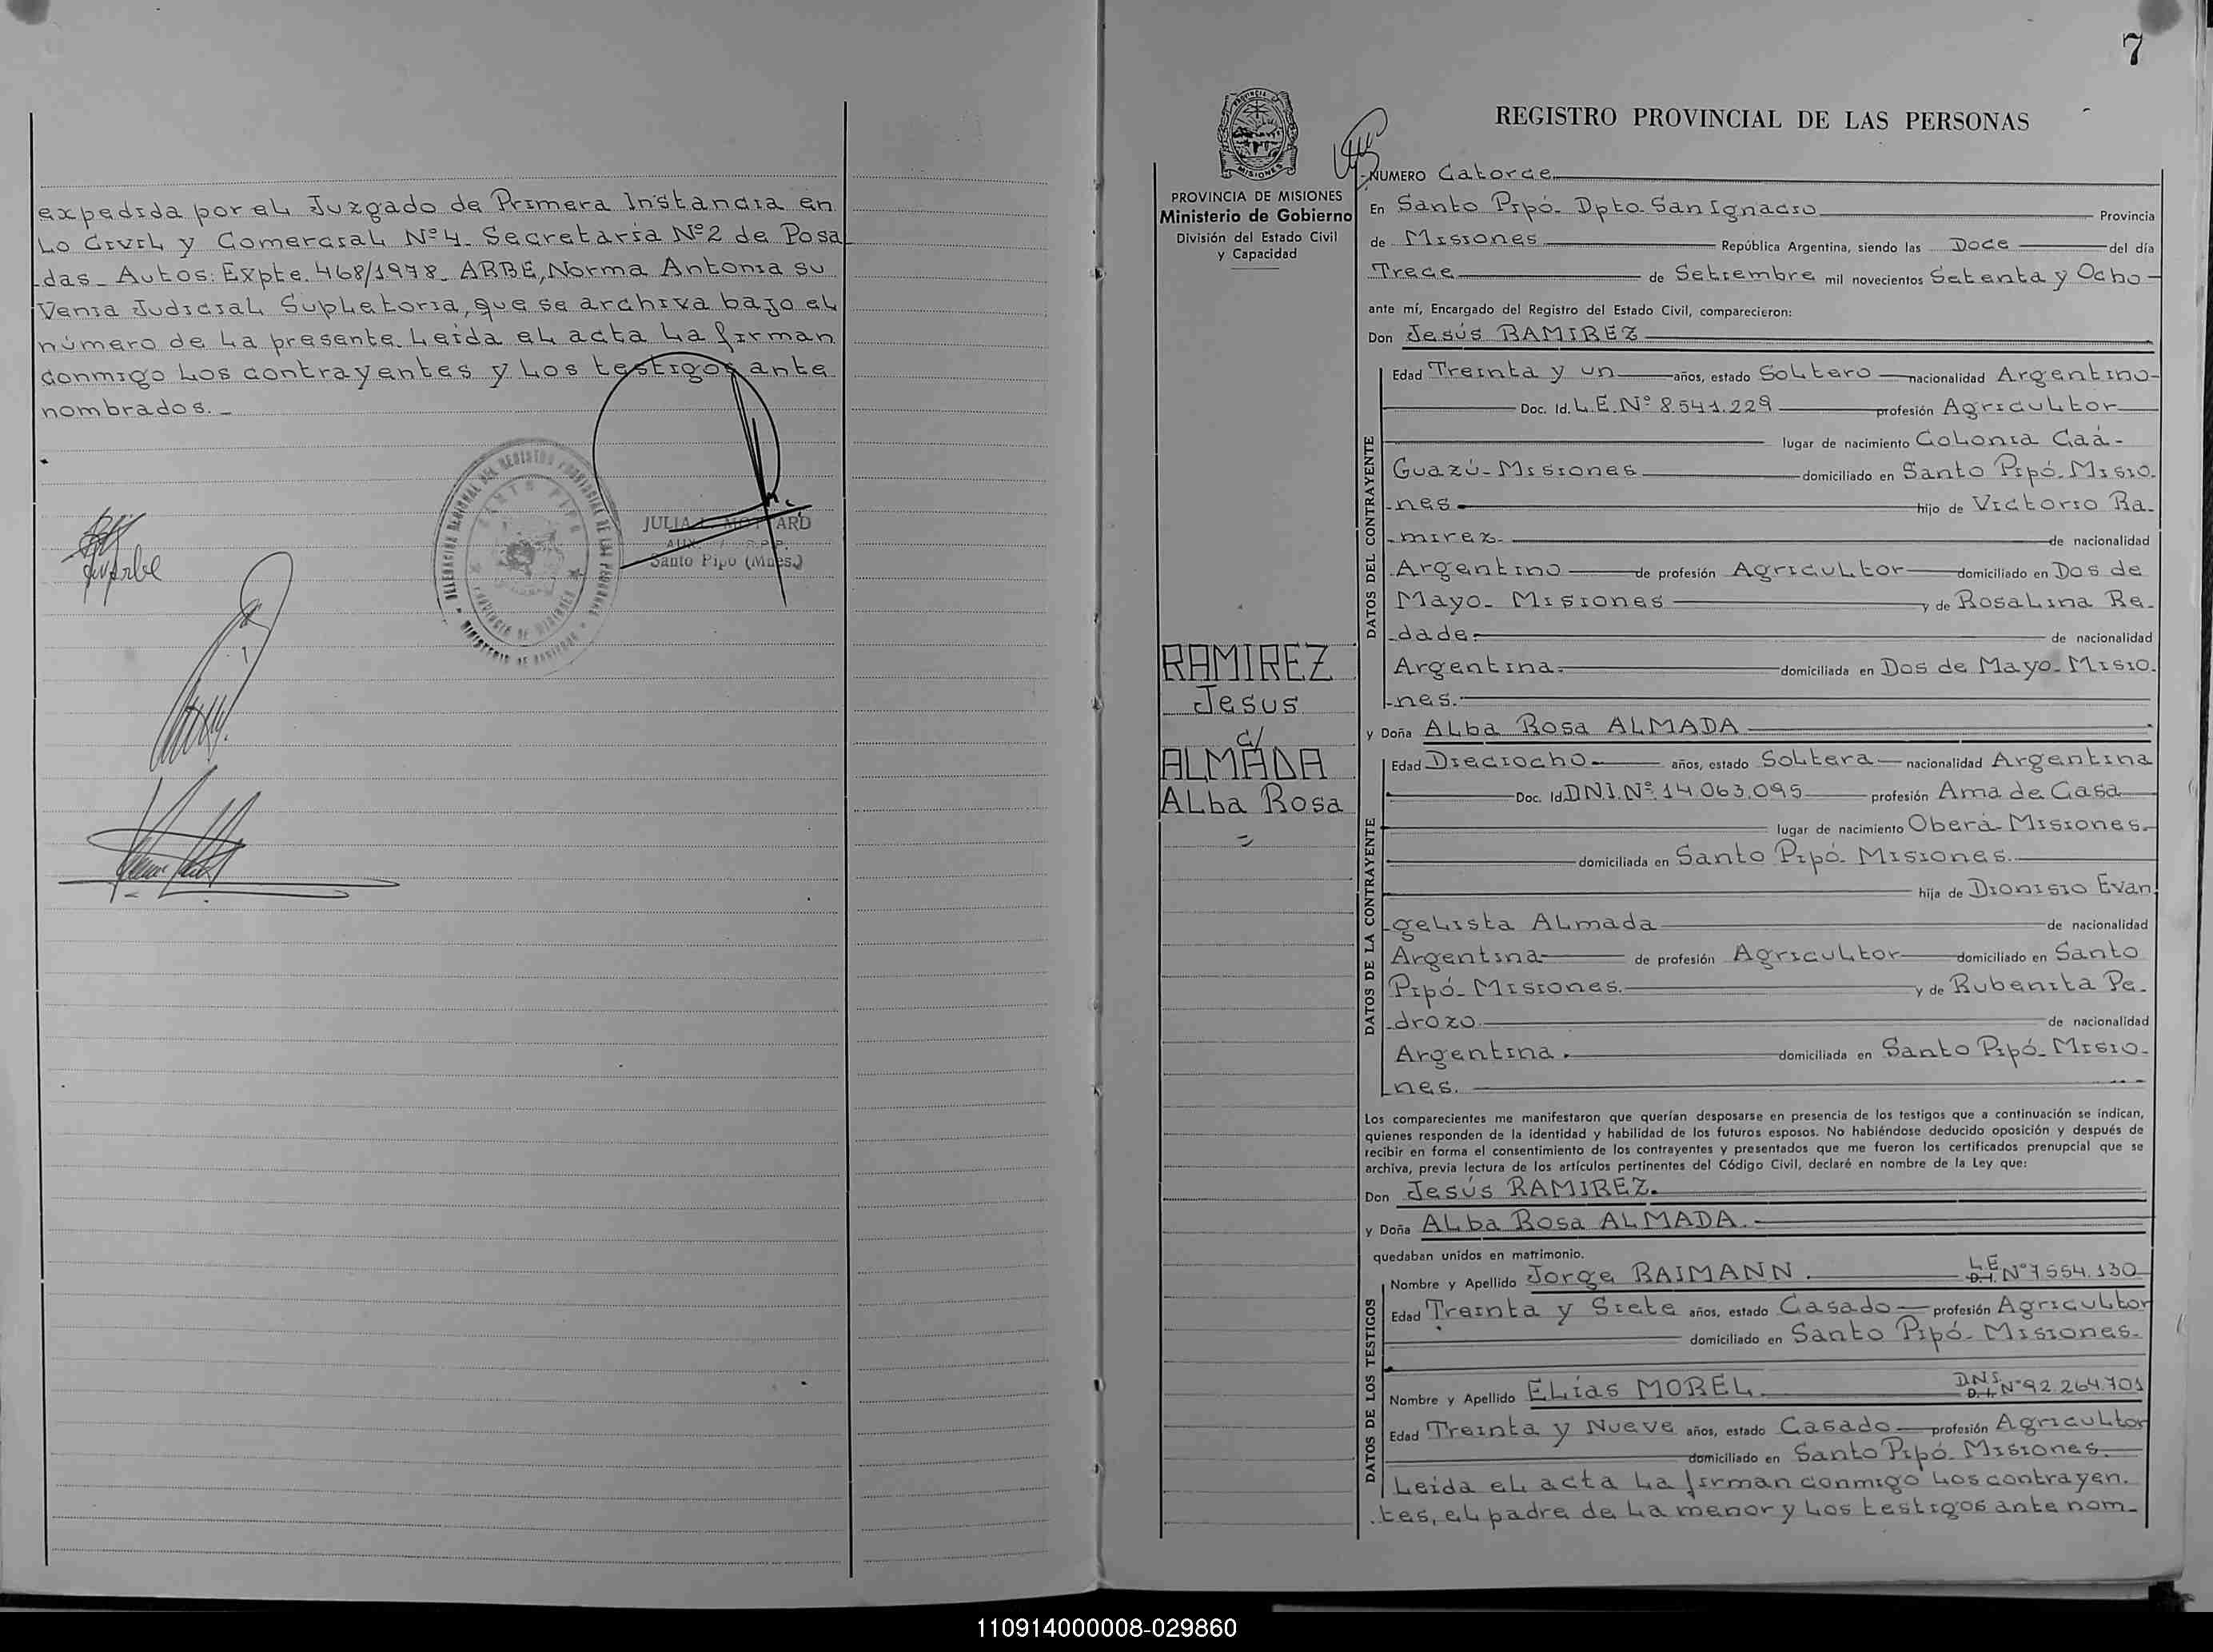 expedida por el Juzgado de Primera Instancia en
Lo Civil y Comercial Nº4. Secretaria Nº2 de Posa
das. Autos: Expte. 468/1978. ARBE, Norma Antonia su
Venia Judicial Supletoria, que se archiva bajo el
número de la presente. Leída el acta la firman
conmigo los contrayentes y los testigos ante
nombrados. _
DELEGACION REGIONAL DEL REGISTRO PROVINCIAL DE LAS PERSONAS
SANTO PIPO
PROVINCIA DE MISIONES
MINISTERIO DE GOBIERNO
JULIA
Santo Pipo (Mnes.)
7
PROVINCIA DE
MISIONES
REGISTRO PROVINCIAL DE LAS PERSONAS
PROVINCIA DE MISIONES
Ministerio de Gobierno
División del Estado Civil
y Capacidad
RAMIREZ
Jesus
c/
ALMADA
Alba Rosa
NUMERO Catorce
En Santo Pipó. Dpto. San Ignacio Provincia
de Misiones República Argentina, siendo las Doce del día
Trece de Setiembre mil novecientos Setenta y Ocho
ante mí, Encargado del Registro del Estado Civil, comparecieron:
Don Jesús RAMIREZ
DATOS DEL CONTRAYENTE
Edad Treinta y un años, estado Soltero nacionalidad Argentino
Doc. Id. L.E. Nº 8.541.229 profesión Agricultor
lugar de nacimiento Colonia Caá-
Guazú-Misiones domiciliado en Santo Pipó. Misio.
nes. hijo de Victorio Ra.
mirez. de nacionalidad
Argentino de profesión Agricultor domiciliado en Dos de
Mayo. Misiones y de Rosalina Re.
dade. de nacionalidad
Argentina. domiciliada en Dos de Mayo. Misio.
nes.
y Doña Alba Rosa ALMADA
DATOS DE LA CONTRAYENTE
Edad Dieciocho años, estado Soltera nacionalidad Argentina
Doc. Id. DNI. Nº 14.063.095 profesión Ama de Casa
lugar de nacimiento Oberá-Misiones.
domiciliada en Santo Pipó. Misiones.
hija de Dionisio Evan
gelista Almada de nacionalidad
Argentina de profesión Agricultor domiciliado en Santo
Pipó. Misiones. y de Rubenita Pe.
drozo. de nacionalidad
Argentina. domiciliada en Santo Pipó. Misio.
nes.
Los comparecientes me manifestaron que querían desposarse en presencia de los testigos que a continuación se indican,
quienes responden de la identidad y habilidad de los futuros esposos. No habiéndose deducido oposición y después de
recibir en forma el consentimiento de los contrayentes y presentados que me fueron los certificados prenupcial que se
archiva, previa lectura de los artículos pertinentes del Código Civil, declaré en nombre de la Ley que:
Don Jesús RAMIREZ.
y Doña Alba Rosa ALMADA.
quedaban unidos en matrimonio.
DATOS DE LOS TESTIGOS
Nombre y Apellido Jorge RAIMANN. L.E. D.I. Nº 7554.130
Edad Treinta y Siete años, estado Casado profesión Agricultor
domiciliado en Santo Pipó. Misiones.
Nombre y Apellido Elías MOREL. DNI. D.I. Nº 92.264.701
Edad Treinta y Nueve años, estado Casado profesión Agricultor
domiciliado en Santo Pipó. Misiones.
Leída el acta la firman conmigo los contrayen.
tes, el padre de la menor y los testigos ante nom.
110914000008-029860